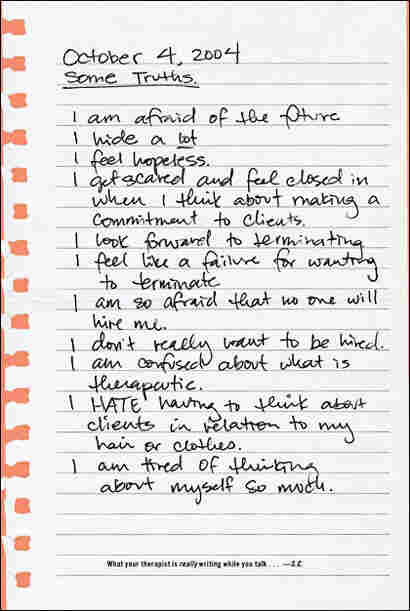 October 4, 2004
Some Truths.
I am afraid of the future
I hide a lot
I feel hopeless.
I get scared and feel closed in
when I think about making a
commitment to clients.
I look forward to terminating
I feel like a failure for wanting
to terminate
I am so afraid that no one will
hire me.
I don't really want to be hired.
I am confused about what is
therapeutic.
I HATE having to think about
clients in relation to my
hair or clothes.
I am tired of thinking
about myself so much.
What your therapist is really writing while you talk . . . . —S.C.